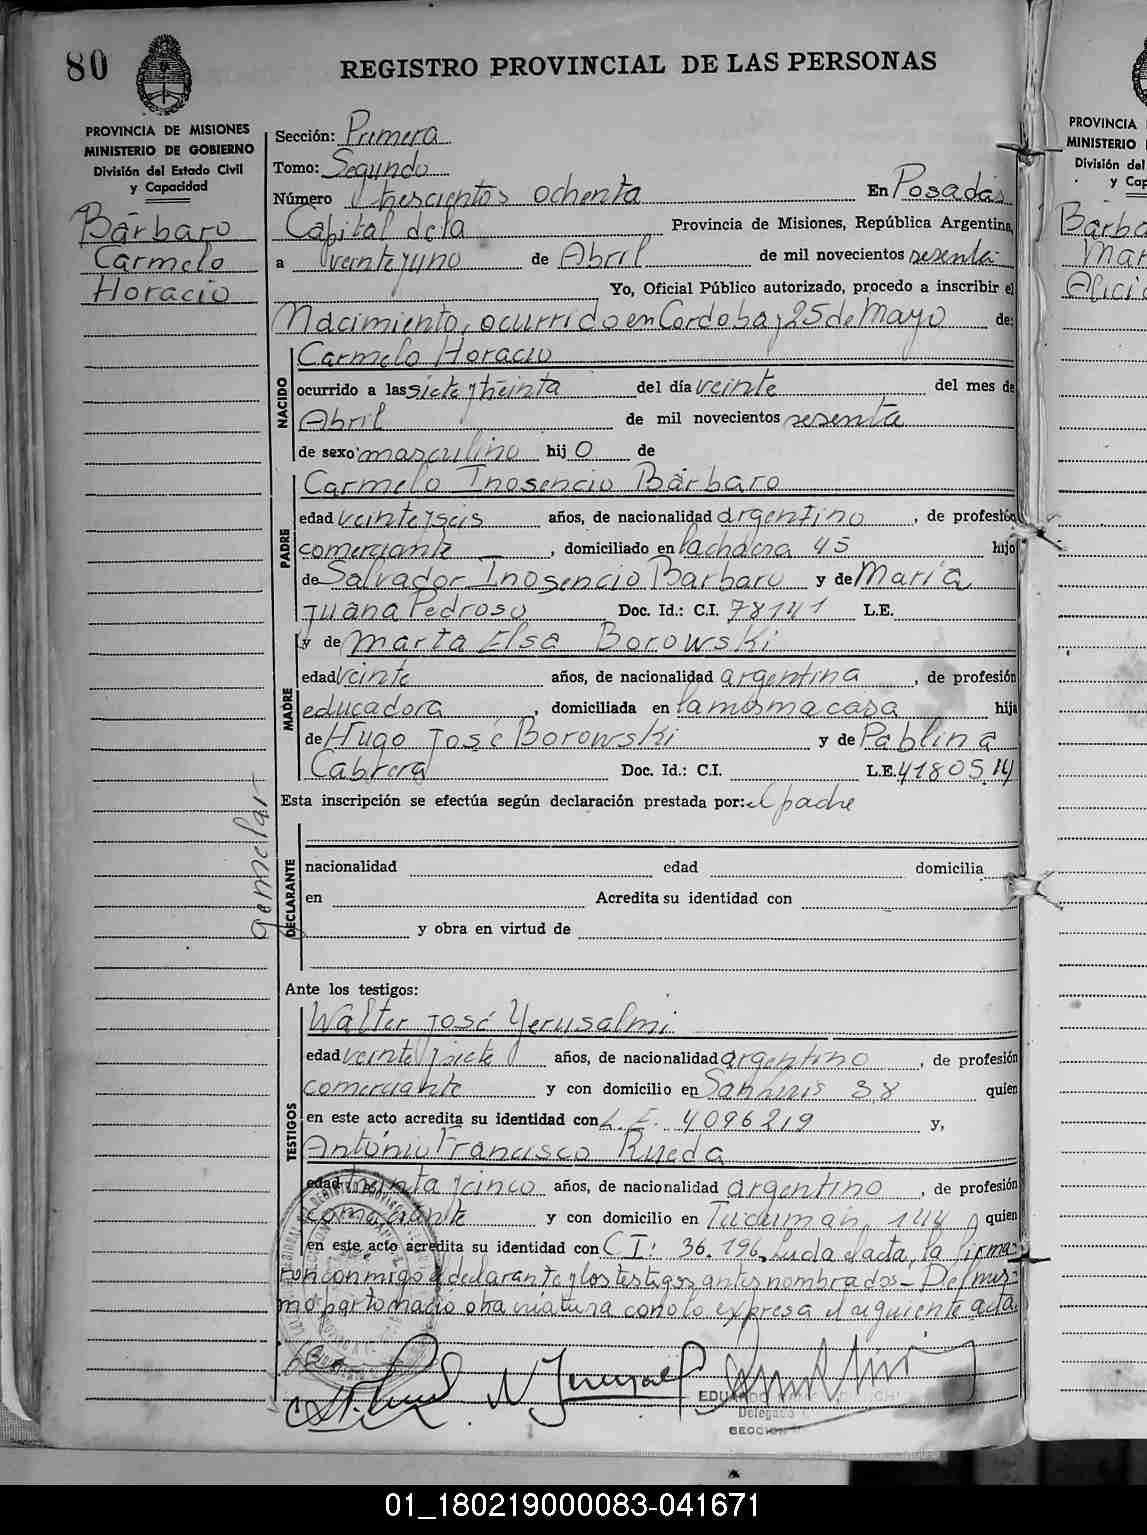 80
REGISTRO PROVINCIAL DE LAS PERSONAS
PROVINCIA DE MISIONES
MINISTERIO DE GOBIERNO
División del Estado Civil
y Capacidad
Bárbaro
Carmelo
Horacio
Sección: Primera
Tomo: Segundo
Número trescientos ochenta En Posadas
Capital de la Provincia de Misiones, República Argentina,
a veinte y uno de Abril de mil novecientos sesenta
Yo, Oficial Público autorizado, procedo a inscribir el
Nacimiento, ocurrido en Cordoba y 25 de Mayo de:
NACIDO
Carmelo Horacio
ocurrido a las siete y treinta del día veinte del mes de
Abril de mil novecientos sesenta
de sexo masculino hij o de
PADRE
Carmelo Inosencio Bárbaro
edad veinte y seis años, de nacionalidad argentino, de profesión
comerciante, domiciliado en la chacra 45 hijo
de Salvador Inosencio Barbaro y de María
Juana Pedroso Doc. Id.: C.I. 78141 L.E.
y de Marta Elsa Borowski
MADRE
edad veinte años, de nacionalidad argentina, de profesión
educadora, domiciliada en la misma casa hija
de Hugo José Borowski y de Pablina
Cabrera Doc. Id.: C.I. L.E. 4180514
Esta inscripción se efectúa según declaración prestada por: el padre
gemelar
DECLARANTE
nacionalidad edad domicilia
en Acredita su identidad con
y obra en virtud de
Ante los testigos:
TESTIGOS
Walter José Yerusalmi
edad veinte y siete años, de nacionalidad argentino, de profesión
comerciante y con domicilio en San Luis 38 quien
en este acto acredita su identidad con L.E. 4096219 y,
Antonio Francisco Rueda
edad treinta y cinco años, de nacionalidad argentino, de profesión
comerciante y con domicilio en Tucumán 144 quien
en este acto acredita su identidad con C I: 36.196. Leida el acta, la firma-
ron conmigo el declarante y los testigos antes nombrados - Del mis-
mo parto nacio otra criatura como lo expresa el siguiente acta.
EDUARDO
Delegado
SECCION
PROVINCIA
MINISTERIO
División del
y Cap
Bárba
Mar
Alicia
01_180219000083-041671